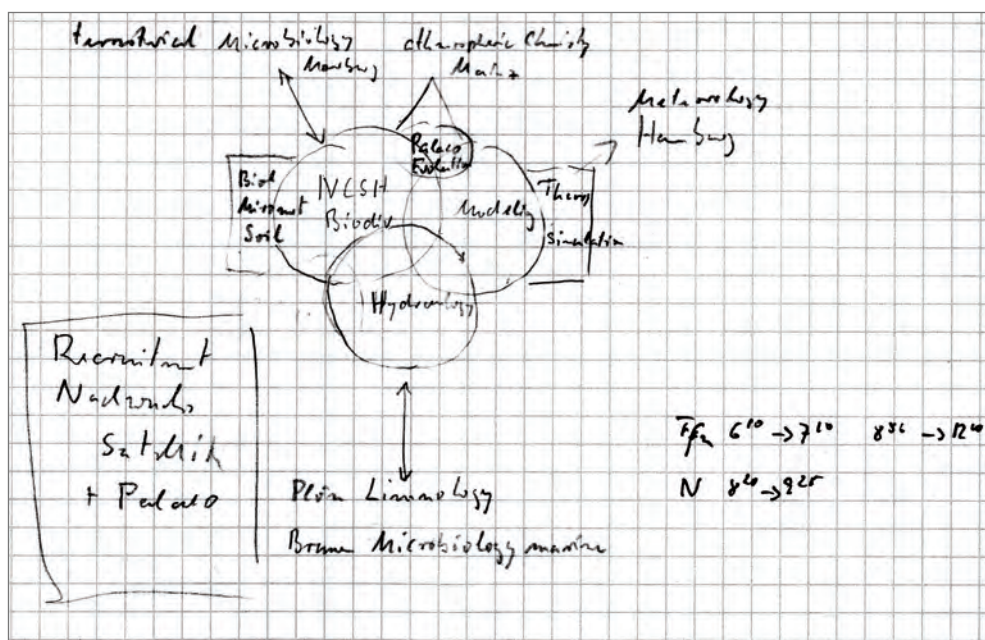 terrestrical Microbiology
Marburg
athmospheric Chemisty
Mainz
Meteorology
Hamburg
Palaeo
Evolution
Biol
Soil
Biodiv
Modeling
Theory
Simulation
Hydrology
Recruitment
Nachwuchs
Satellit
+ Palaeo
Plön Limnology
Bremen Microbiology marine
6¹⁰ → 7¹⁰
N 8²⁰ → 9²⁵